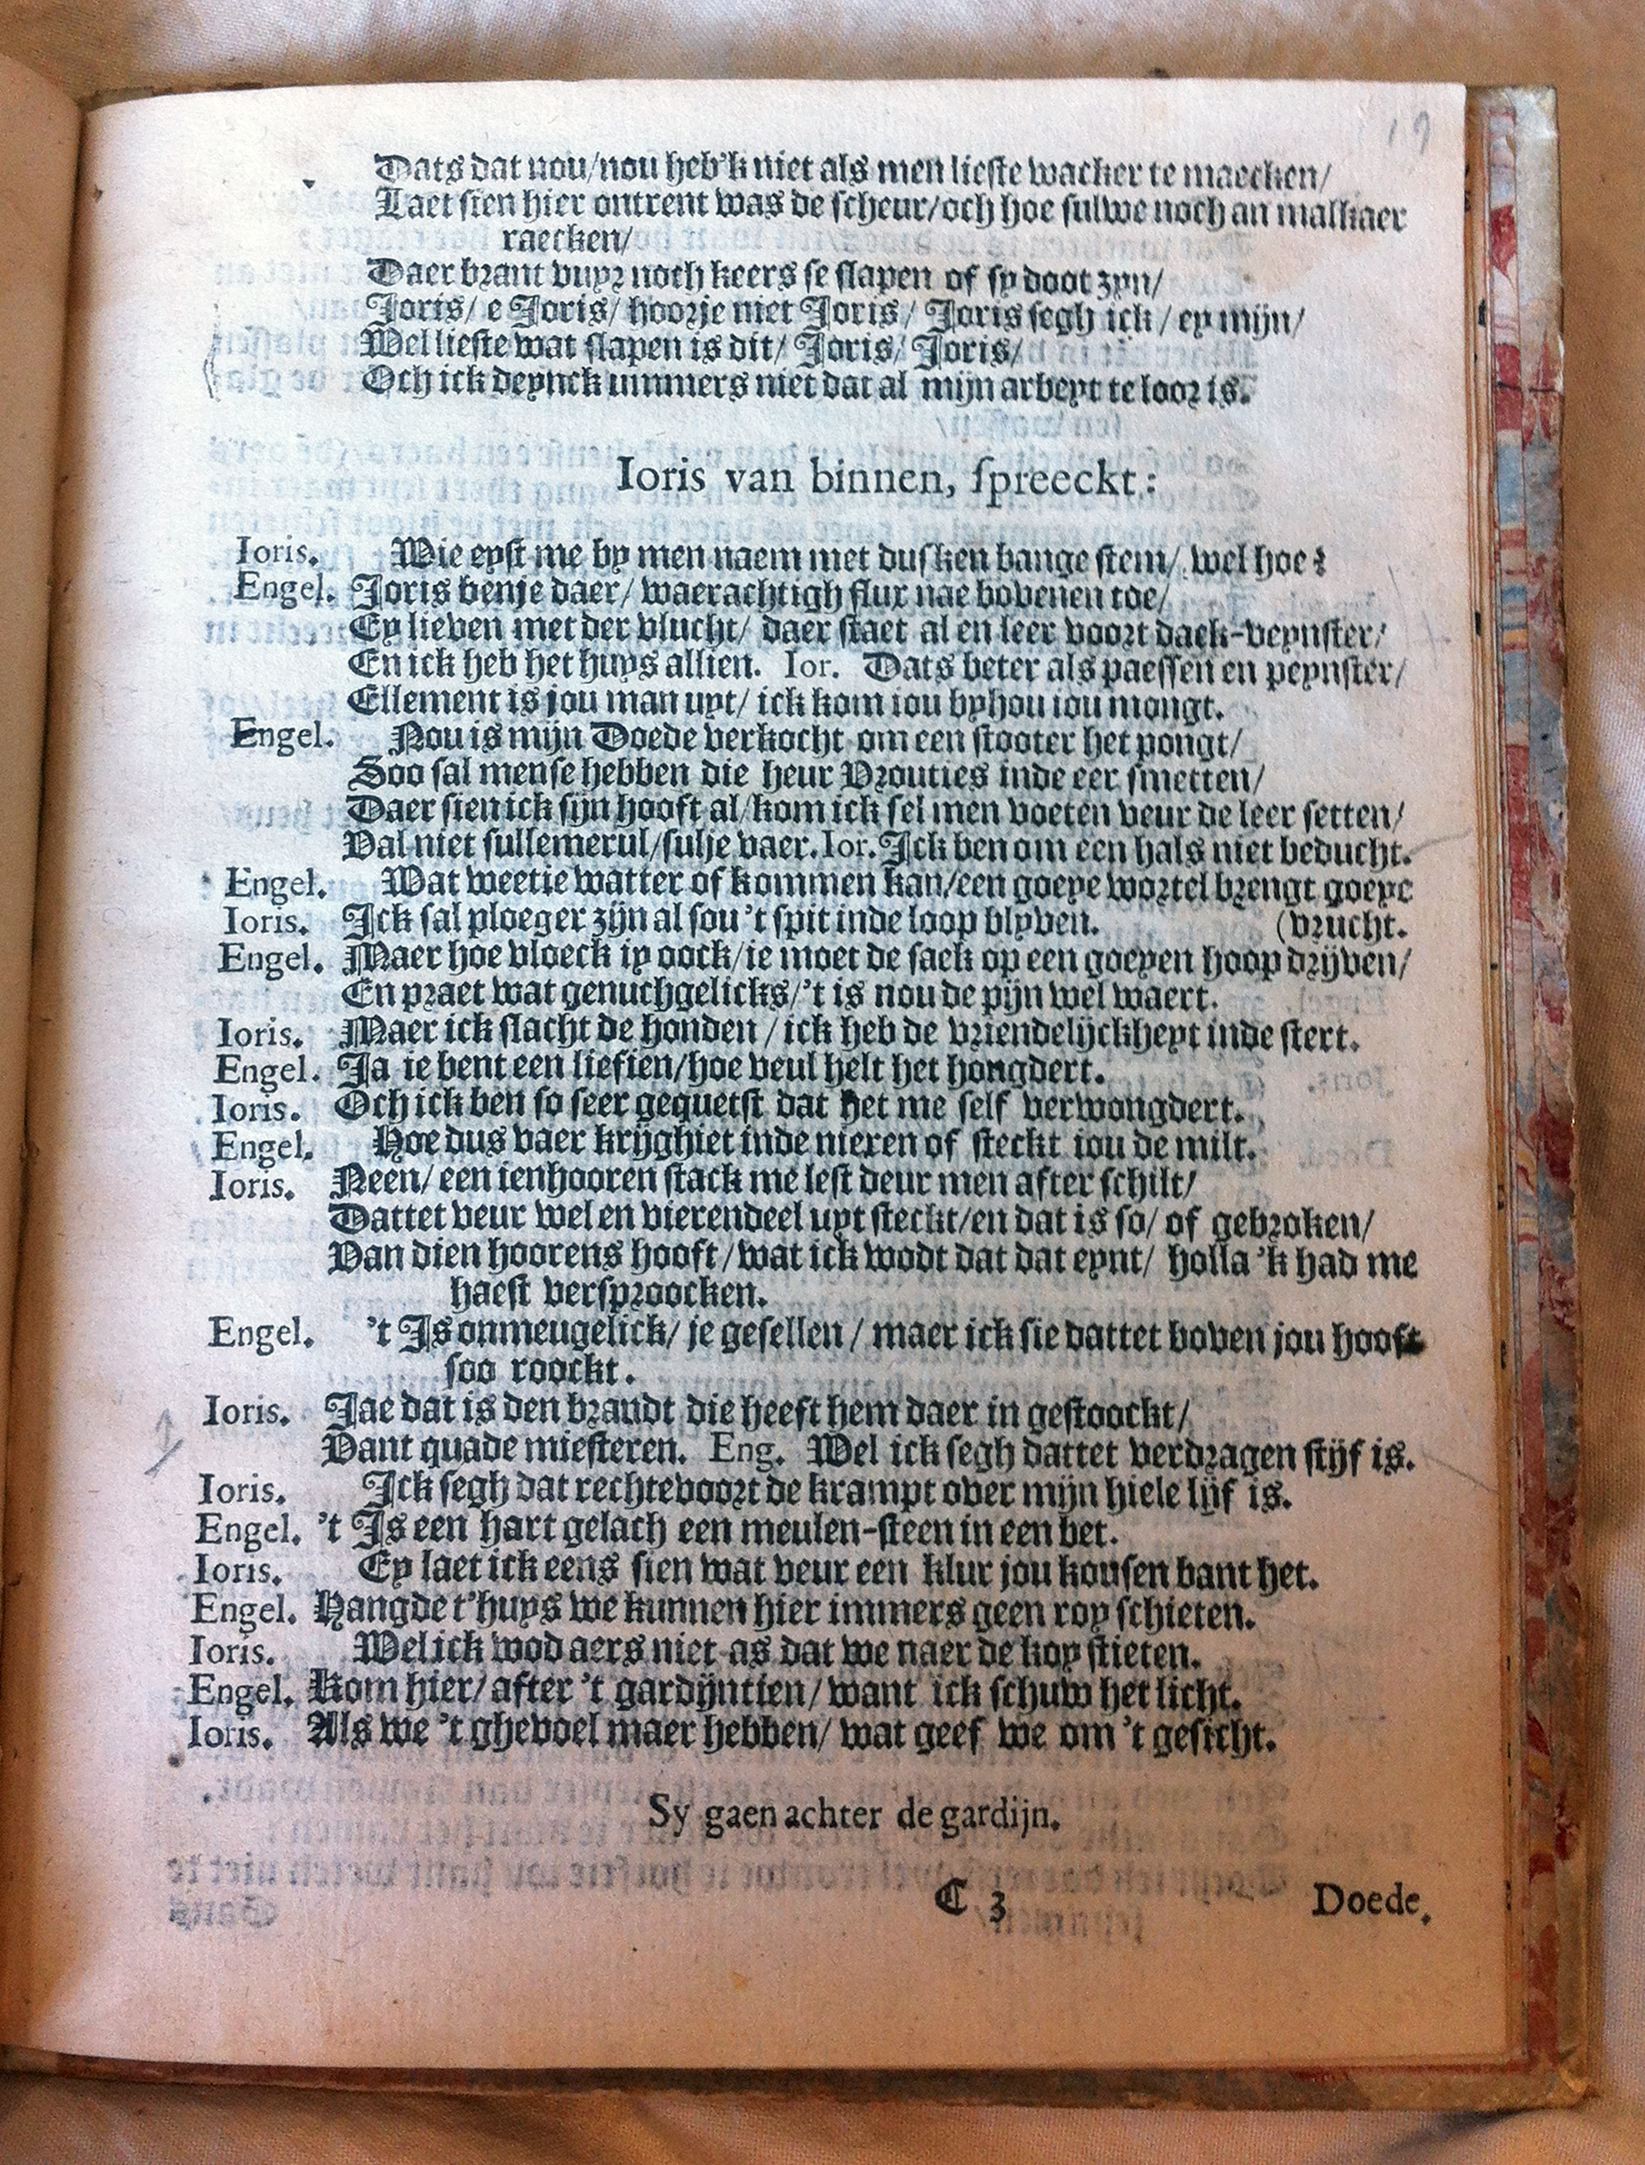 19
Dats dat nou/nou heb'k niet als men lieste wacker te maecken/
Laet sien hier ontrent was de scheur/och hoe sulwe noch an malkaer
raecken/
Daer brant vuyr noch keers se slapen of sy doot zyn/
Joris/ e Joris/ hoorje niet Joris/ Joris segh ick/ ey mijn/
Wel lieste wat slapen is dit/ Joris/ Joris/
Och ick deynck ummers niet dat al mijn arbeyt te loor is.
Ioris van binnen, spreeckt:
Ioris. Wie eyst me by men naem met dusken bange stem/ wel hoe?
Engel. Joris benje daer/ waerachtigh flux nae bovenen toe/
Ey lieven met der vlucht/ daer staet al en leer voort dack-veynster/
En ick heb het huys allien. Ior. Dats beter als paessen en peynster/
Ellement is jou man uyt/ ick kom iou by hou iou mongt.
Engel. Nou is mijn Doede verkocht om een stooter het pongt/
Soo sal mense hebben die heur Vrouties inde eer smetten/
Daer sien ick sijn hooft al/kom ick sel men voeten veur de leer setten/
Val niet sullemerul/sulje vaer. Ior. Ick ben om een hals niet beducht.
Engel. Wat weetie watter of kommen kan/een goeye wortel brengt goeye
Ioris. Ick sal ploeger zijn al sou 't spit inde loop blyven. (vrucht.
Engel. Maer hoe vloeck iy oock/ie moet de sack op een goeyen hoop drijven/
En praet wat genuchgelicks/'t is nou de pijn wel waert.
Ioris. Maer ick slacht de honden/ ick heb de vriendelijckheyt inde stert.
Engel. Ja ie bent een liefien/hoe veul helt het hongdert.
Ioris. Och ick ben so seer gequetst dat het me self verwongdert.
Engel. Hoe dus vaer krijghiet inde nieren of steckt iou de milt.
Ioris. Neen/ een ienhooren stack me lest deur men after schilt/
Dattet veur wel en vierendeel uyt steckt/en dat is so/ of gebroken/
Van dien hoorens hooft/wat ick wodt dat dat eynt/ holla 'k had me
haest versproocken.
Engel. 't Is onmeugelick/ je gesellen/ maer ick sie dattet boven jou hooft
soo roockt.
Ioris. Jae dat is den brandt die heeft hem daer in gestoockt/
Vant quade miesteren. Eng. Wel ick segh dattet verdragen stijf is.
Ioris. Ick segh dat rechtevoort de krampt over mijn hiele lijf is.
Engel. 't Is een hart gelach een meulen-steen in een bet.
Ioris. Ey laet ick eens sien wat veur een klur jou kousen bant het.
Engel. Hangde t'huys we kunnen hier immers geen roy schieten.
Ioris. Wel ick wod aers niet as dat we naer de koy stieten.
Engel. Kom hier/ after 't gardijntien/ want ick schuw het licht.
Ioris. Als we 't ghevoel maer hebben/ wat geef we om 't gesicht.
Sy gaen achter de gardijn.
C 3 Doede.